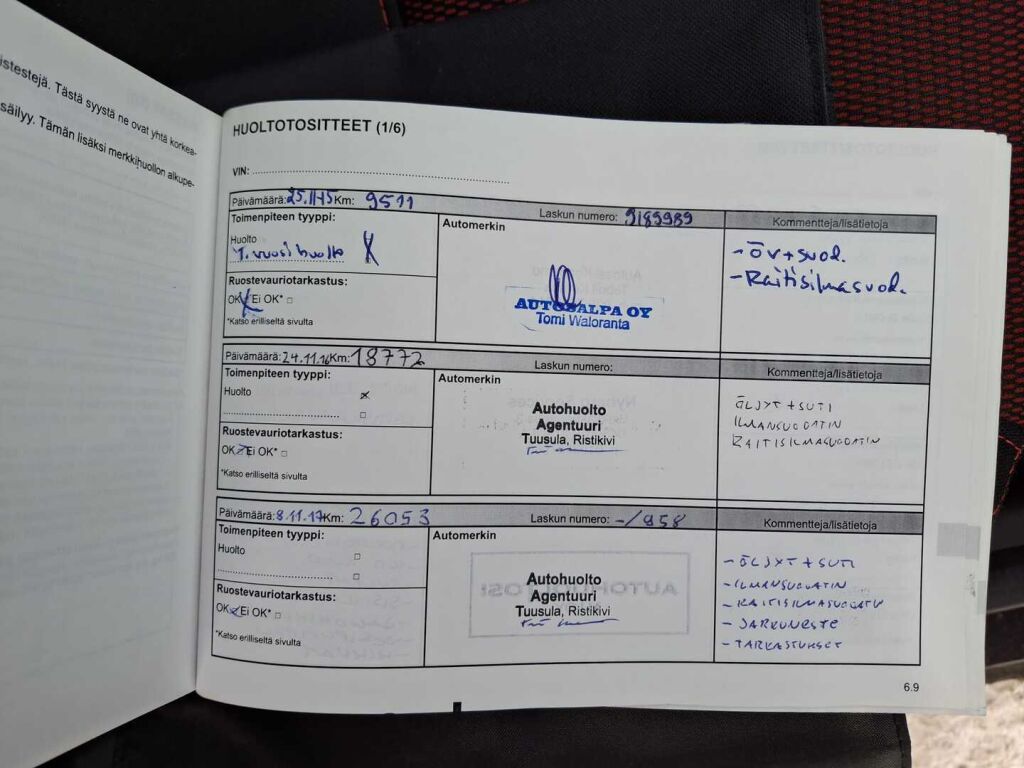 istestejä. Tästä syystä ne ovat yhtä korkea-
säilyy. Tämän lisäksi merkkihuollon alkupe-
HUOLTOTOSITTEET (1/6)
VIN:
Päivämäärä: 25.11.15 Km: 9511 Laskun numero: 9189989 Kommentteja/lisätietoja
Toimenpiteen tyyppi:
Automerkin
Huolto
1. vuosihuolto X
- öv+suod.
- Raitisilmasuod.
Ruostevauriotarkastus:
OK Ei OK*
*Katso erilliseltä sivulta
AUTOSALPA OY
Tomi Waloranta
Päivämäärä: 24.11.16 Km: 18772 Laskun numero: Kommentteja/lisätietoja
Toimenpiteen tyyppi:
Automerkin
Huolto x
ÖLJYT + SUTI
ILMANSUODATIN
RAITISILMASUODATIN
Autohuolto
Agentuuri
Tuusula, Ristikivi
Ruostevauriotarkastus:
OK Ei OK*
*Katso erilliseltä sivulta
Päivämäärä: 8.11.17 Km: 26053 Laskun numero: -/958 Kommentteja/lisätietoja
Toimenpiteen tyyppi:
Automerkin
Huolto
- ÖLJYT + SUTI
- ILMANSUODATIN
- RAITISILMASUODATIN
- JARRUNESTE
- TARKASTUKSET
Autohuolto
Agentuuri
Tuusula, Ristikivi
Ruostevauriotarkastus:
OK Ei OK*
*Katso erilliseltä sivulta
6.9